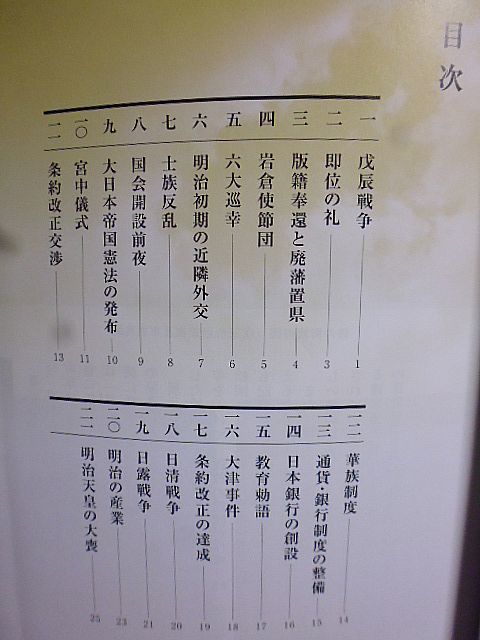 目次
一 戊辰戦争 1
二 即位の礼 3
三 版籍奉還と廃藩置県 4
四 岩倉使節団 5
五 六大巡幸 6
六 明治初期の近隣外交 7
七 士族反乱 8
八 国会開設前夜 9
九 大日本帝国憲法の発布 10
一〇 宮中儀式 11
一一 条約改正交渉 13
一二 華族制度 14
一三 通貨・銀行制度の整備 15
一四 日本銀行の創設 16
一五 教育勅語 17
一六 大津事件 18
一七 条約改正の達成 19
一八 日清戦争 20
一九 日露戦争 21
二〇 明治の産業 23
二一 明治天皇の大喪 25